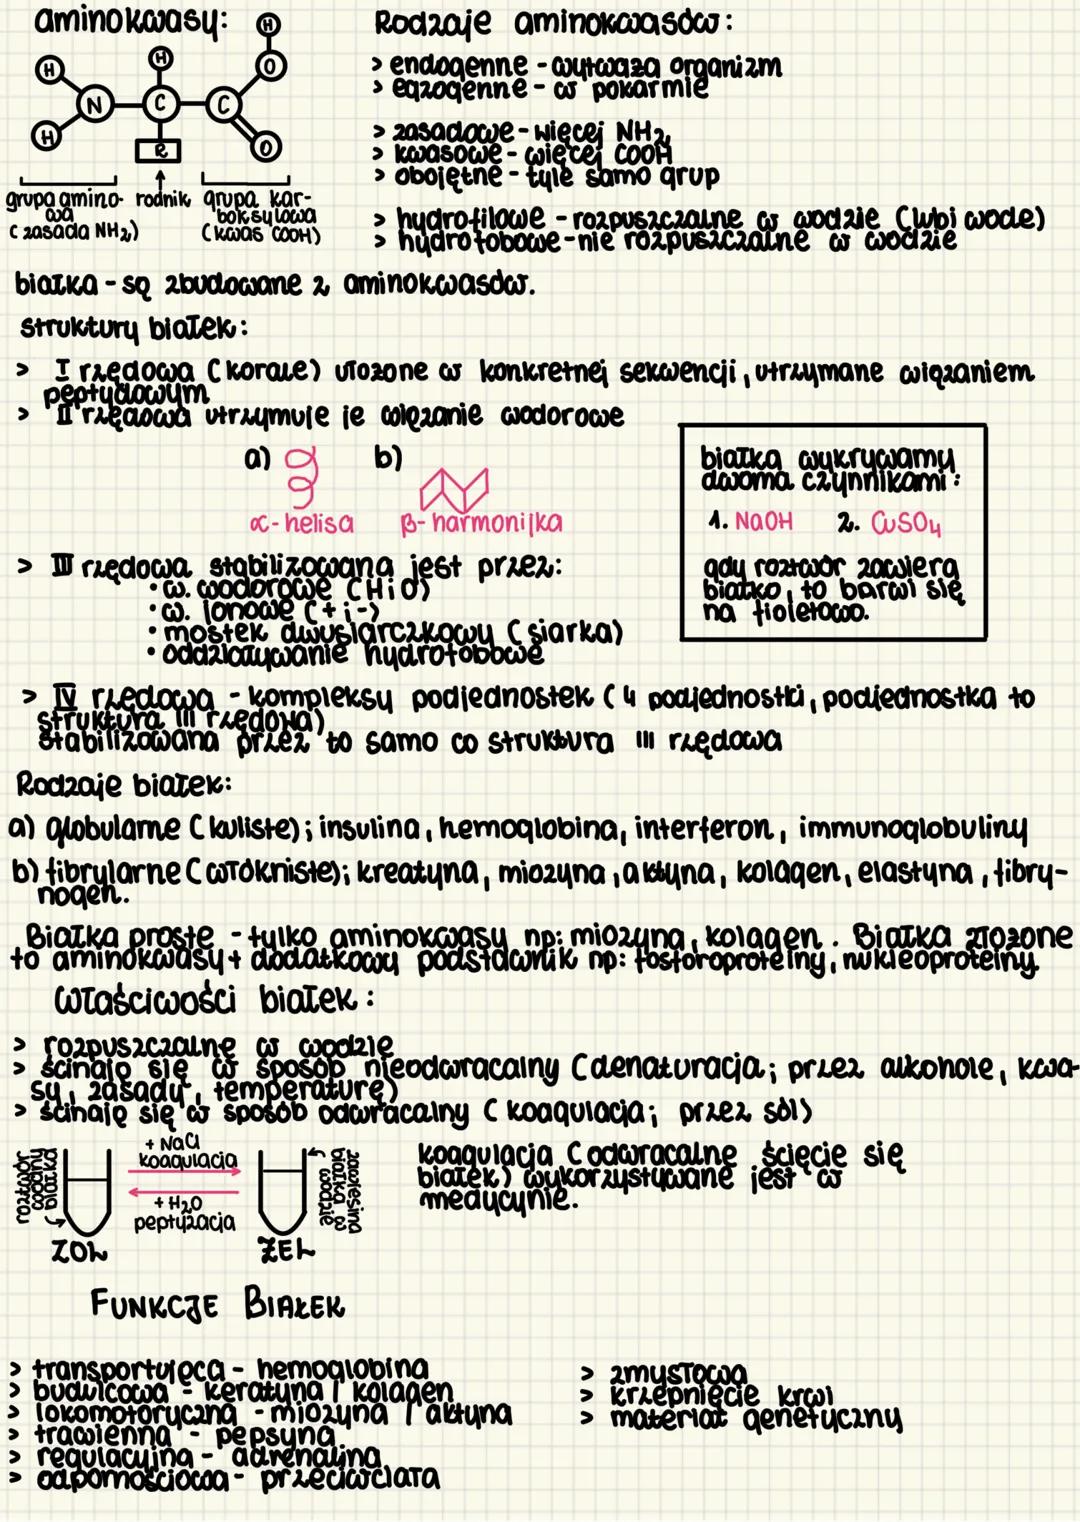 aminokwasy:
H
H
H
O
N
C
C
H
R
O
grupa amino-
wa
(zasada NH2)
rodnik
grupa kar-
boksylowa
(kwas COOH)
Rodzaje aminokwasów:
> endogenne - wytważa organizm
> egzogenne - w pokarmie
> zasadowe - więcej NH2
> kwasowe - więcej COOH
> obojętne - tyle samo grup
> hydrofilowe - rozpuszczalne w wodzie (lubi wode)
> hydrofobowe - nie rozpuszczalne w wodzie
białka - są zbudowane z aminokwasów.
struktury białek:
> I rzędowa (korale) ułożone w konkretnej sekwencji, utrzymane wiązaniem
peptydowym
> II rzędowa utrzymuje je wiązanie wodorowe
a)
b)
α-helisa
β-harmonijka
białka wykrywamy
dwoma czynnikami:
1. NaOH 2. CuSO4
gdy roztwór zawiera
białko, to barwi się
na fioletowo.
> III rzędowa stabilizowana jest przez:
• w. wodorowe (H i O)
• w. jonowe (+ i -)
• mostek dwusiarczkowy (siarka)
• oddziaływanie hydrofobowe
> IV rzędowa - kompleksy podjednostek (4 podjednostki, podjednostka to
struktura III rzędowa)
stabilizowana przez to samo co struktura III rzędowa
Rodzaje białek:
a) globularne (kuliste); insulina, hemoglobina, interferon, immunoglobuliny
b) fibrylarne (włókniste); kreatyna, miozyna, aktyna, kolagen, elastyna, fibry-
nogen.
Białka proste - tylko aminokwasy np: miozyna, kolagen. Białka złożone
to aminokwasy + dodatkowy podstawnik np: fosforoproteiny, nukleoproteiny.
Właściwości białek:
> rozpuszczalne w wodzie
> ścinają się w sposób nieodwracalny (denaturacja; przez alkohole, kwa-
sy, zasady, temperaturę)
> ścinają się w sposób odwracalny (koagulacja; przez sól)
roztwór
wodny
białka
ZOL
+ NaCl
koagulacja
+ H2O
peptyzacja
zawiesina
białka w
wodzie
ŻEL
koagulacja (odwracalne ścięcie się
białek) wykorzystywane jest w
medycynie.
FUNKCJE BIAŁEK
> transportująca - hemoglobina
> budulcowa - keratyna i kolagen
> lokomotoryczna - miozyna i aktyna
> trawienna - pepsyna
> regulacyjna - adrenalina
> odpornościowa - przeciwciała
> zmysłowa
> krzepnięcie krwi
> materiał genetyczny